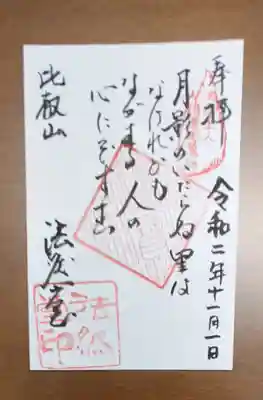 奉拝
令和二年十一月一日
月影のいたらぬ里は
なけれども
ながむる人の
心にぞすむ
比叡山
法然堂
法然堂印